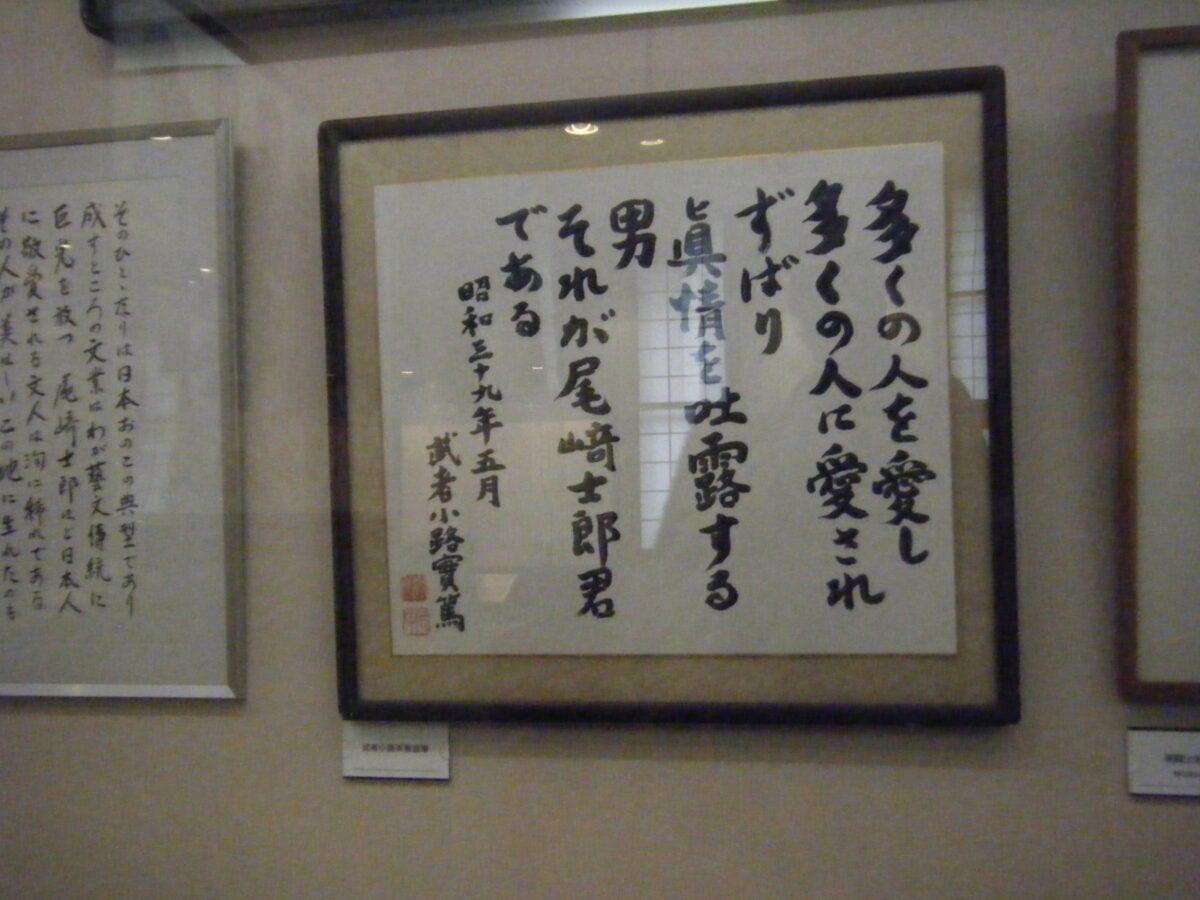 多くの人を愛し
多くの人に愛され
ずばり
と眞情を吐露する
男
それが尾﨑士郎君
である
昭和三十九年五月
武者小路實篤
そのひとゝなりは日本おのこの典型であり
成すところの文業はわが藝文傳統に
巨光を放つ 尾﨑士郎ほど日本人
に敬愛される文人は洵に稀れである
その人が美はしいこの地に生れたのも